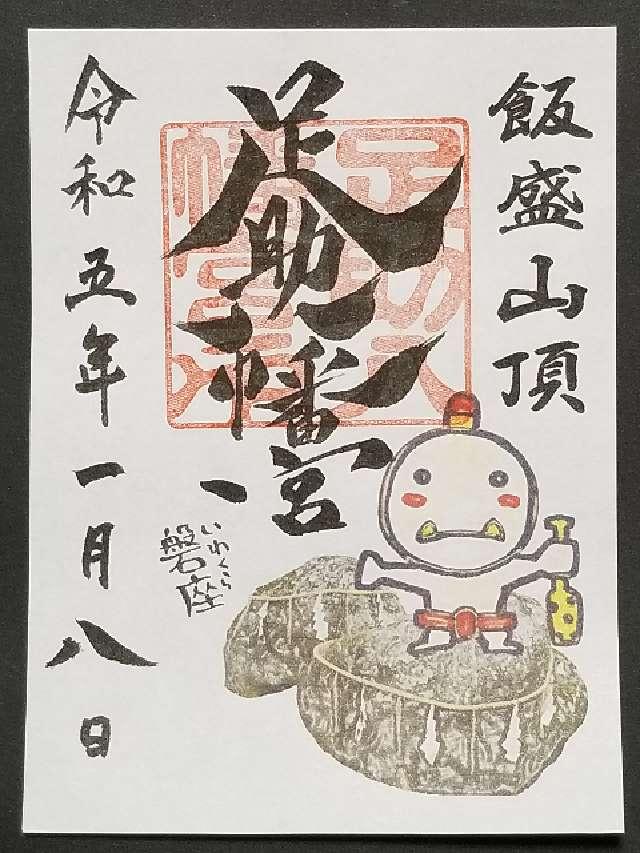 飯盛山頂
足助八幡宮
磐座
いわくら
令和五年一月八日